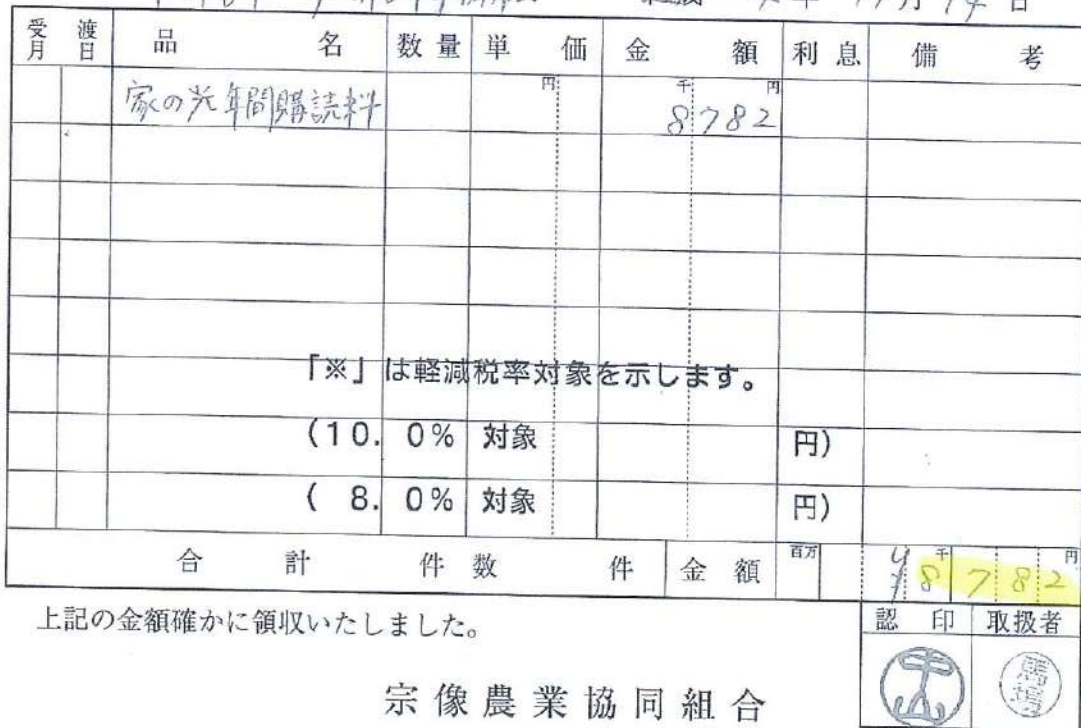 年 月 日
受渡月日 品名 数量 単価 金額 利息 備考
円 千 円
家の光年間購読料 8782
「※」は軽減税率対象を示します。
(10.0% 対象 円)
( 8.0% 対象 円)
合計 件数 件 金額 百万 千 円 ¥8782
上記の金額確かに領収いたしました。
認印 取扱者
馬場
宗像農業協同組合